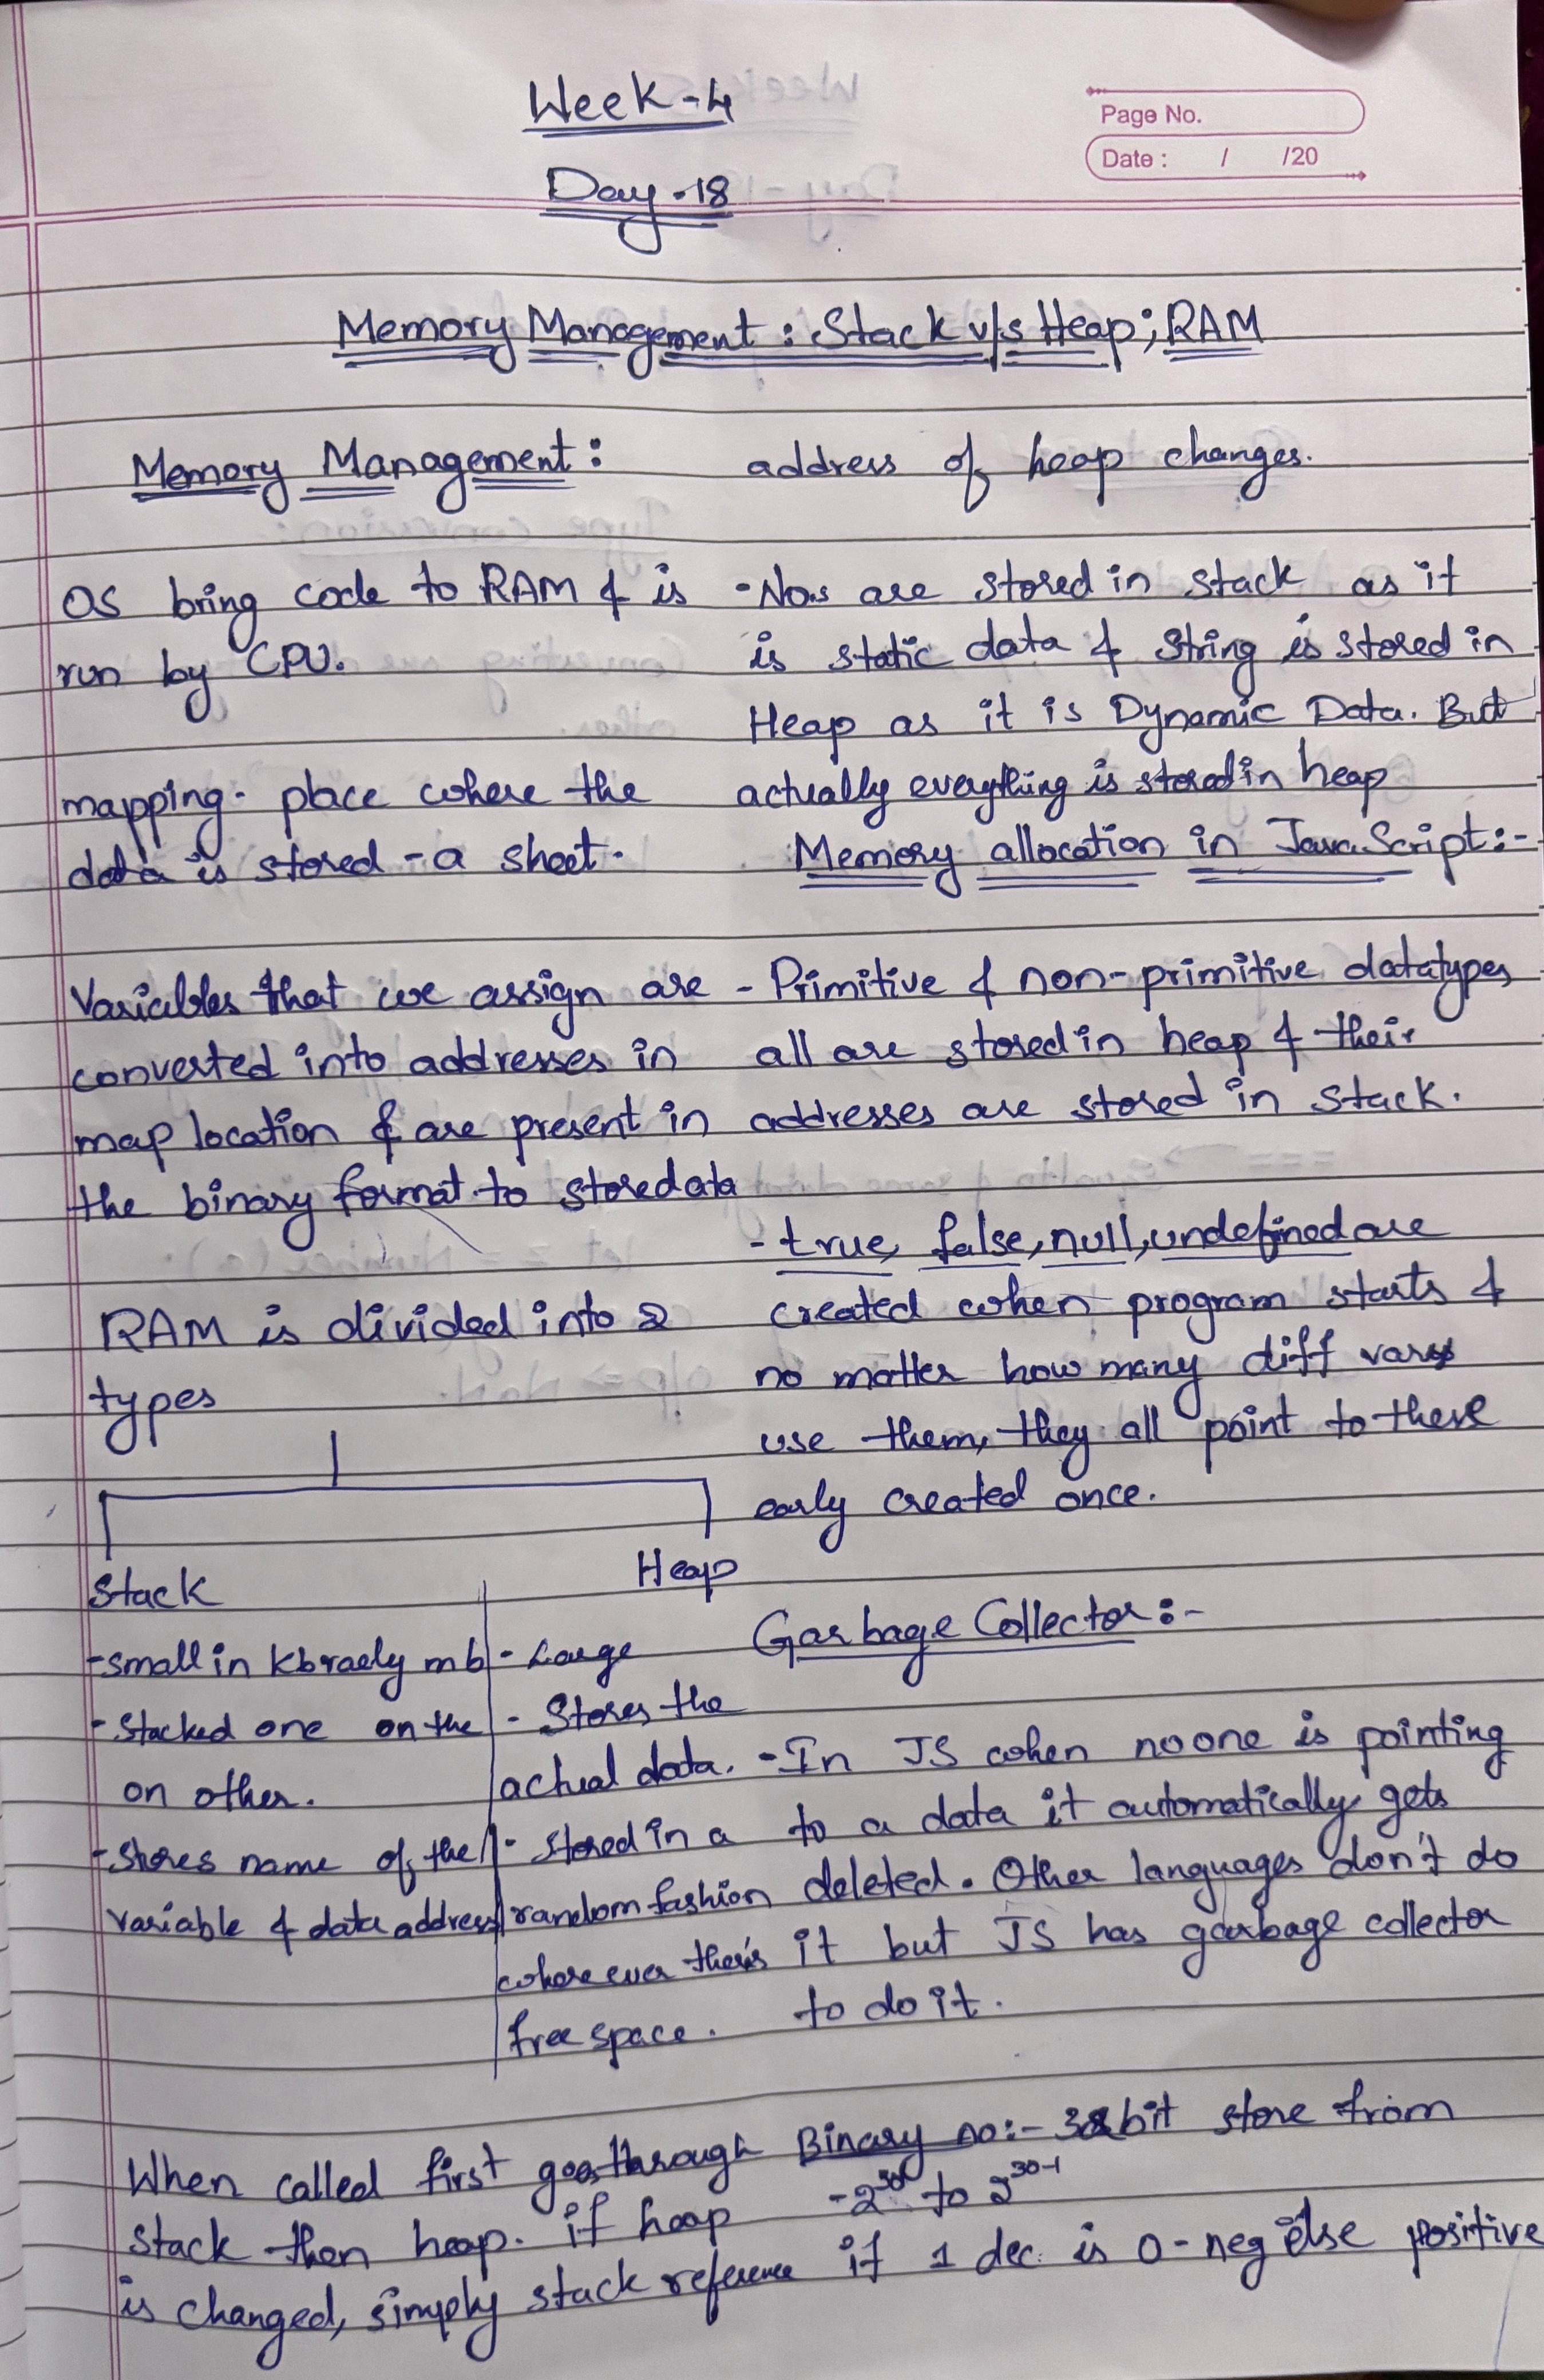 Week-4
Day-18
Page No.
Date : / /20
Memory Management : Stack v/s Heap; RAM
Memory Management :
OS bring code to RAM & is
run by CPU.
mapping - place where the
data is stored - a sheet.
Variables that we assign are
converted into addresses in
map location & are present in
the binary format to store data
RAM is divided into 2
types
Stack
- small in kb raely mb
- Stacked one on the
on other.
- Stores name of the
variable & data address
Heap
- Large
- Stores the
actual data.
- Stored in a
random fashion
where ever there's
free space.
When called first goes through
stack then heap. if heap
is changed, simply stack reference
address of heap changes.
- Nos are stored in stack as it
is static data & String is stored in
Heap as it is Dynamic Data. But
actually everything is stored in heap
Memory allocation in JavaScript :-
- Primitive & non-primitive datatypes
all are stored in heap & their
addresses are stored in stack.
- true, false, null, undefined are
created when program starts &
no matter how many diff vars
use them, they all point to these
early created once.
Garbage Collector :-
- In JS when no one is pointing
to a data it automatically gets
deleted. Other languages don't do
it but JS has garbage collector
to do it.
Binary no:- bit store from
-2^30 to 2^30-1
if 1 dec. is 0 - neg else positive